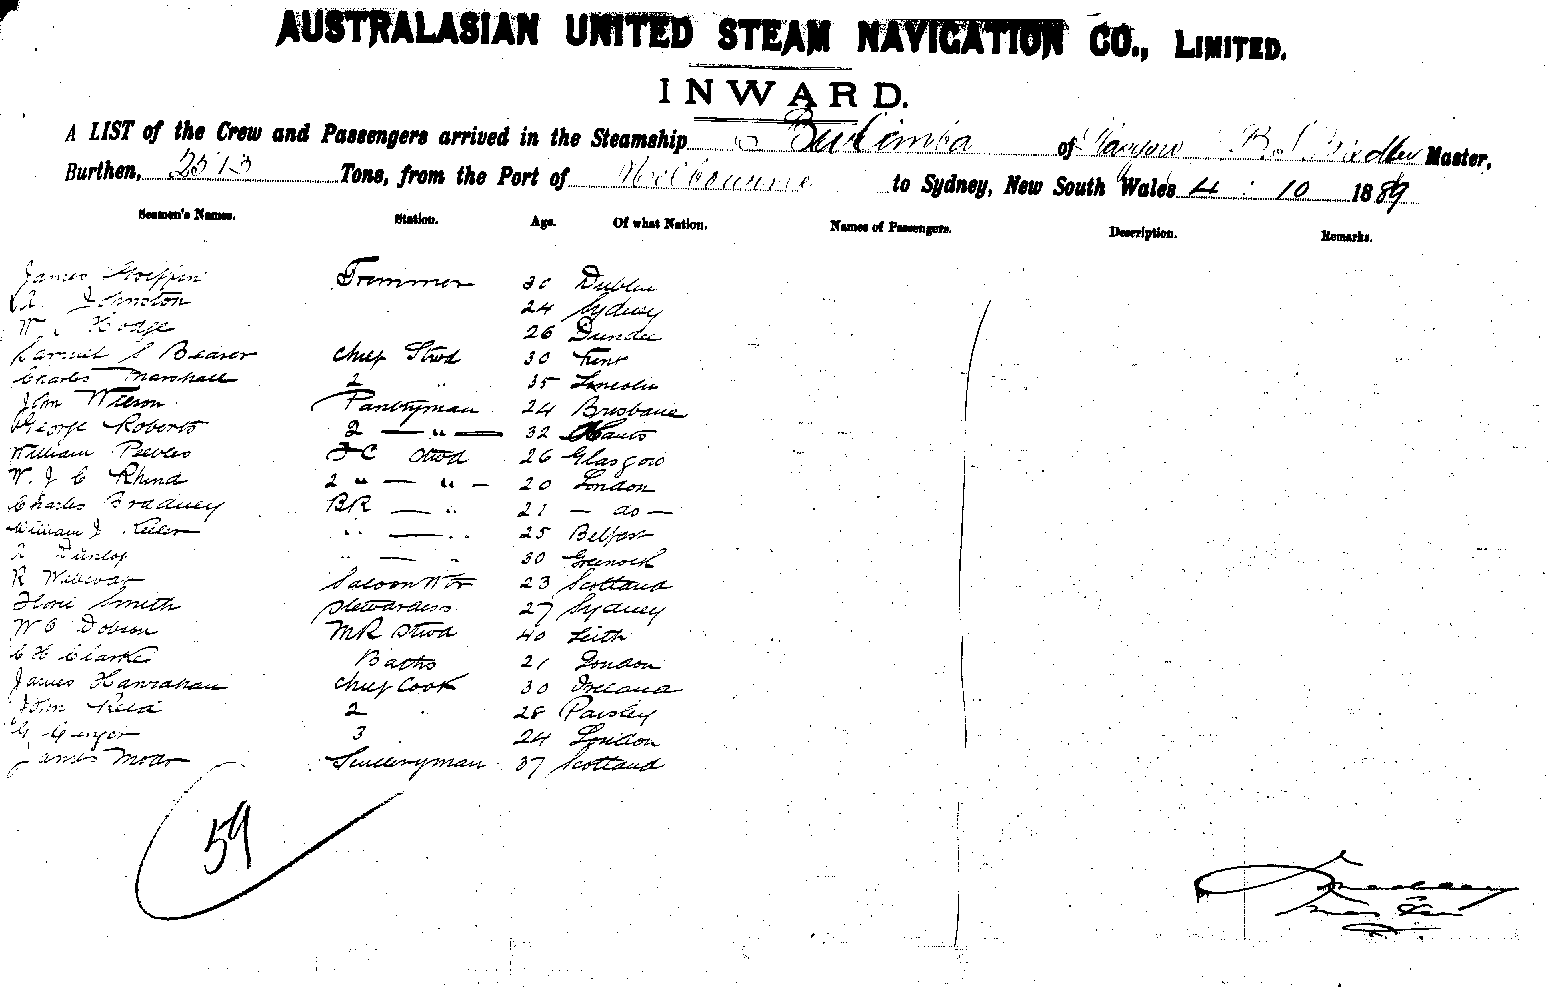 AUSTRALASIAN UNITED STEAM NAVIGATION CO., LIMITED.
INWARD.
A LIST of the Crew and Passengers arrived in the Steamship Bulimba of Glasgow B. S. Master,
Burthen, 2513 Tons, from the Port of Melbourne to Sydney, New South Wales 4 : 10 1889
Seamen's Names. Station. Age. Of what Nation. Names of Passengers. Description. Remarks.
James Trimmer 30 Dublin
A. Johnston 24 Sydney
W Hodge 26 Dundee
Samuel S Beaver Chief Stwd 30 Kent
Charles Marshall 2 " 35 Lincoln
John Wilson Pantryman 24 Brisbane
George Roberts 2 — " — 32 Hants
William Peebles FC Stwd 26 Glasgow
W. J C Rhind 2 " — " — 20 London
Charles Bradney BR — " 21 — do —
William J. " — " 25 Belfast
R Dunlop " — " 30 Greenock
R Saloon Wtr 23 Scotland
Florie Smith Stewardess 27 Sydney
W C Dobson MR Stwd 40 Leith
C H Clarke Baths 21 London
James Hanrahan Chief Cook 30 Ireland
John Reid 2 " 28 Paisley
G 3 24 London
James Moar Sculleryman 37 Scotland
59
Master